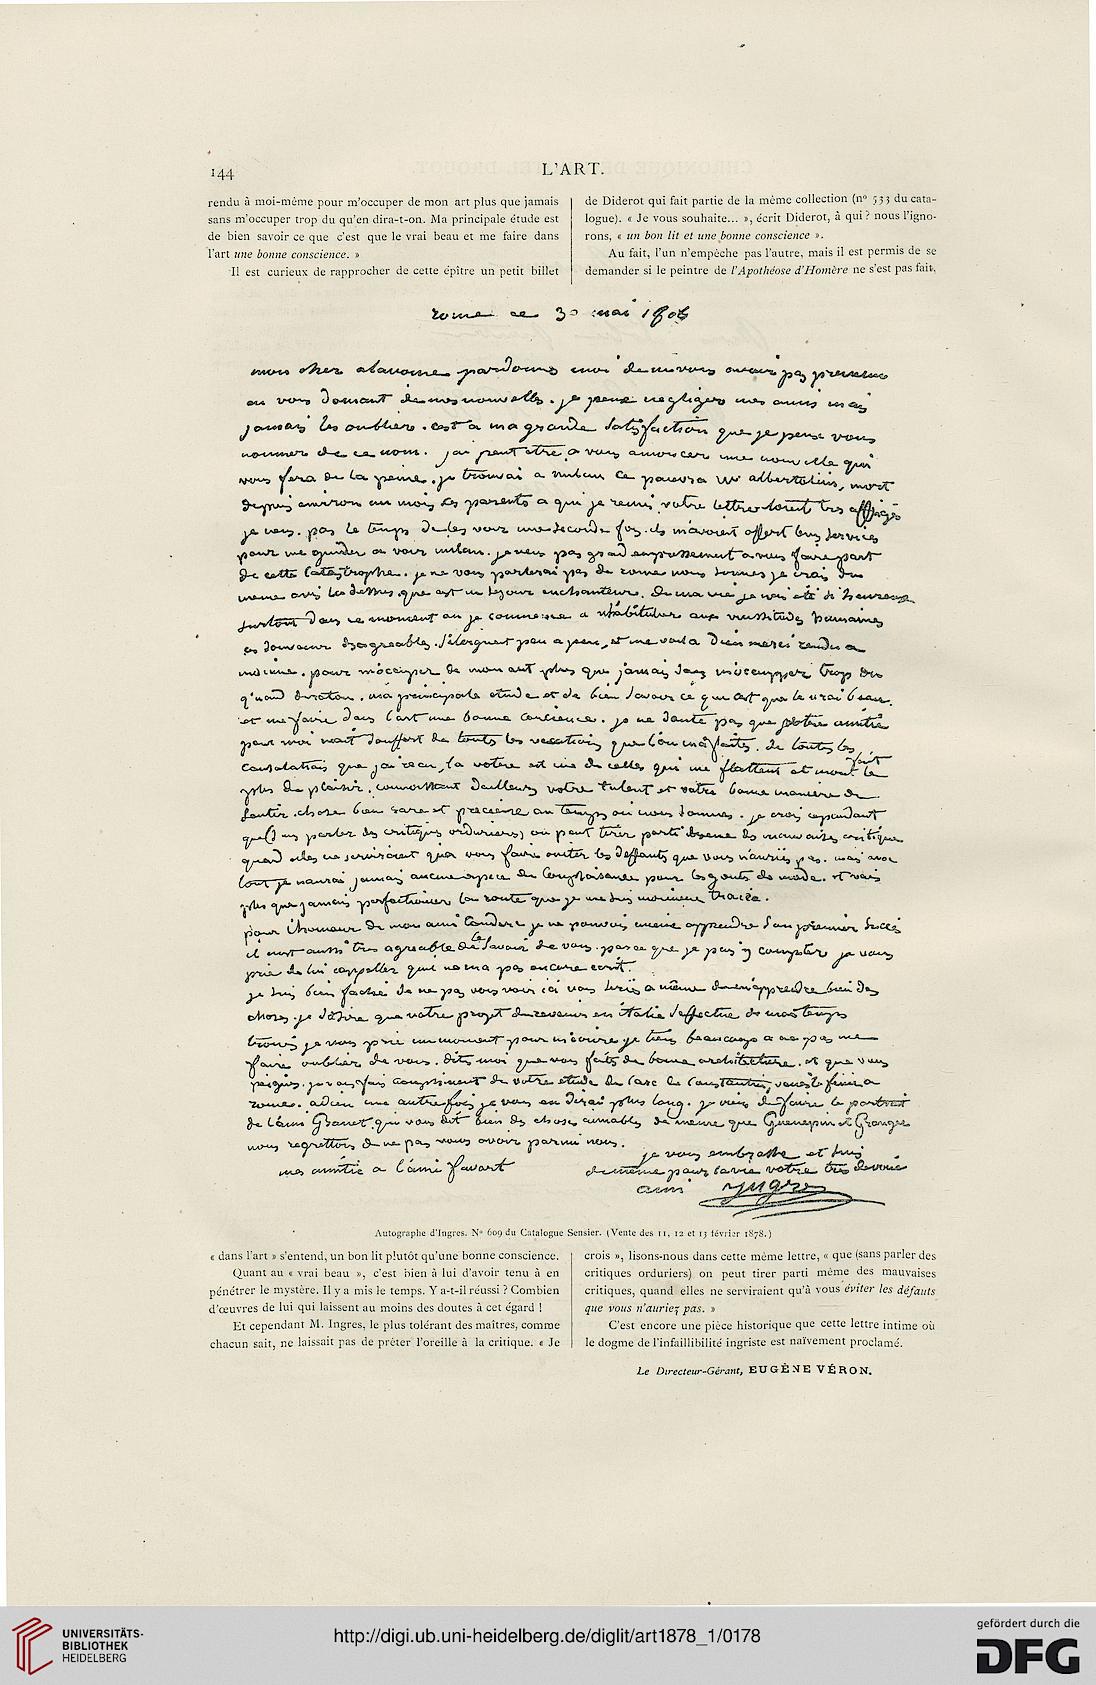 144
L'ART.
rendu à moi-même pour m'occuper de mon art plus que jamais
sans m'occuper trop du qu'en dira-t-on. Ma principale étude est
de bien savoir ce que c'est que le vrai beau et me faire dans
l'art une bonne conscience. »
Il est curieux de rapprocher de cette épître un petit billet
de Diderot qui fait partie de la même collection (n° 533 du cata-
logue). « Je vous souhaite... », écrit Diderot, à qui ? nous l'igno-
rons, « un bon lit et une bonne conscience ».
Au fait, l'un n'empêche pas l'autre, mais il est permis de se
demander si le peintre de l'Apothéose d'Homère ne s'est pas fait,
rome ce 30 mai
mon cher pardonnez moi de ne vous avoir pas
en vous donnant de mes nouvelles . je peux negliger mes amis mais
jamais les oublier . c'est a ma grande satisfaction que je peux vous
nommer de ce nom . j'ai peut etre a vous annoncer une nouvelle qui
vous fera de la peine . je trouvai a milan ce pauvre mort
depuis environ un mois les parents a qui je remis votre lettre tres affligés
je neus pas le temps de les voir une seconde fois . ils m'avoient offert leurs services
pour me guider a voir milan . je neus pas grand empressement a vous faire part
de cette catastrophe . je ne vous parlerai pas de rome nous sommes je crois du
meme avis la dessus que est un sejour enchanteur . de ma vie je nai été si heureux
surtout dans ce moment ou je commence a aux vicissitudes humaines
desagreables . s'eloignent peu a peu , et me voila dieu merci rendu a
moi meme . pour m'occuper de mon art plus que jamais sans m'occupper trop du
qu'en diraton . ma principale etude est de bien savoir ce que cest que le vrai beau .
et me faire dans l'art une bonne concience . je ne doute pas que votre amitié
pour moi nait souffert de toutes les vexations que l'on ma faites . de toutes les
consolations que jai recu , la votre est une de celles qui me flattent et mont fait le
plus de plaisir . connoissant dailleurs votre talent et votre bonne maniere de
sentir . chose bien rare et precieuse au temps ou nous sommes . je crois cependant
que (sans parler des critiques orduriers) on peut tirer parti meme des mauvaises critiques
quand elles ne serviroient qua vous faire eviter les deffauts que vous n'auriés pas . mais
tout je naurai jamais aucune espece de complaisance pour les gouts de mode . et vais
plus que jamais perfectionner la route que je me suis moimeme tracée .
pour l'honneur de mon ami je ne pouvois mieux apprendre son premier succès
il mest aussi tres agreable de le savoir de vous . parce que je puis y compter je vous
prie de lui rappeller quil ne ma pas encore ecrit .
je suis bien faché de ne pas vous voir ici vous seriés a meme den apprendre bien des
choses . je désire que votre projet de revenir en italie s'effectue de mon temps
trouvés je vous prie un moment pour m'ecrire je tiens beaucoup a ne pas me
faire oublier de vous . dites moi que vous faites de bonne architecture . et que vous
peignés . je vous fais compliment de votre etude de l'arc de constantin , venés le finir a
rome . adieu une autre fois je vous en dirai plus long . je viens de faire le portrait
de l'ami Granet qui vous dit bien des choses aimables de meme que Guenepin et Granger
nous regrettons de ne pas vous avoir parmi nous .
je vous embrasse et suis
mes amitié a l'ami favart
de meme pour la vie votre tres devoué
ami Ingres
Autographe d'Ingres. N° 609 du Catalogue Sensier. (Vente des 11, 12 et 13 février 1878.)
« dans l'art » s'entend, un bon lit plutôt qu'une bonne conscience.
Quant au « vrai beau », c'est bien à lui d'avoir tenu à en
pénétrer le mystère. Il y a mis le temps. Y a-t-il réussi ? Combien
d'œuvres de lui qui laissent au moins des doutes à cet égard !
Et cependant M. Ingres, le plus tolérant des maîtres, comme
chacun sait, ne laissait pas de prêter l'oreille à la critique. « Je
crois », lisons-nous dans cette même lettre, « que (sans parler des
critiques orduriers) on peut tirer parti même des mauvaises
critiques, quand elles ne serviraient qu'à vous éviter les défauts
que vous n'auriez pas. »
C'est encore une pièce historique que cette lettre intime où
le dogme de l'infaillibilité ingriste est naïvement proclamé.
Le Directeur-Gérant, EUGÈNE VÉRON.
UNIVERSITÄTS-
BIBLIOTHEK
HEIDELBERG
http://digi.ub.uni-heidelberg.de/diglit/art1878_1/0178
gefördert durch die
DFG